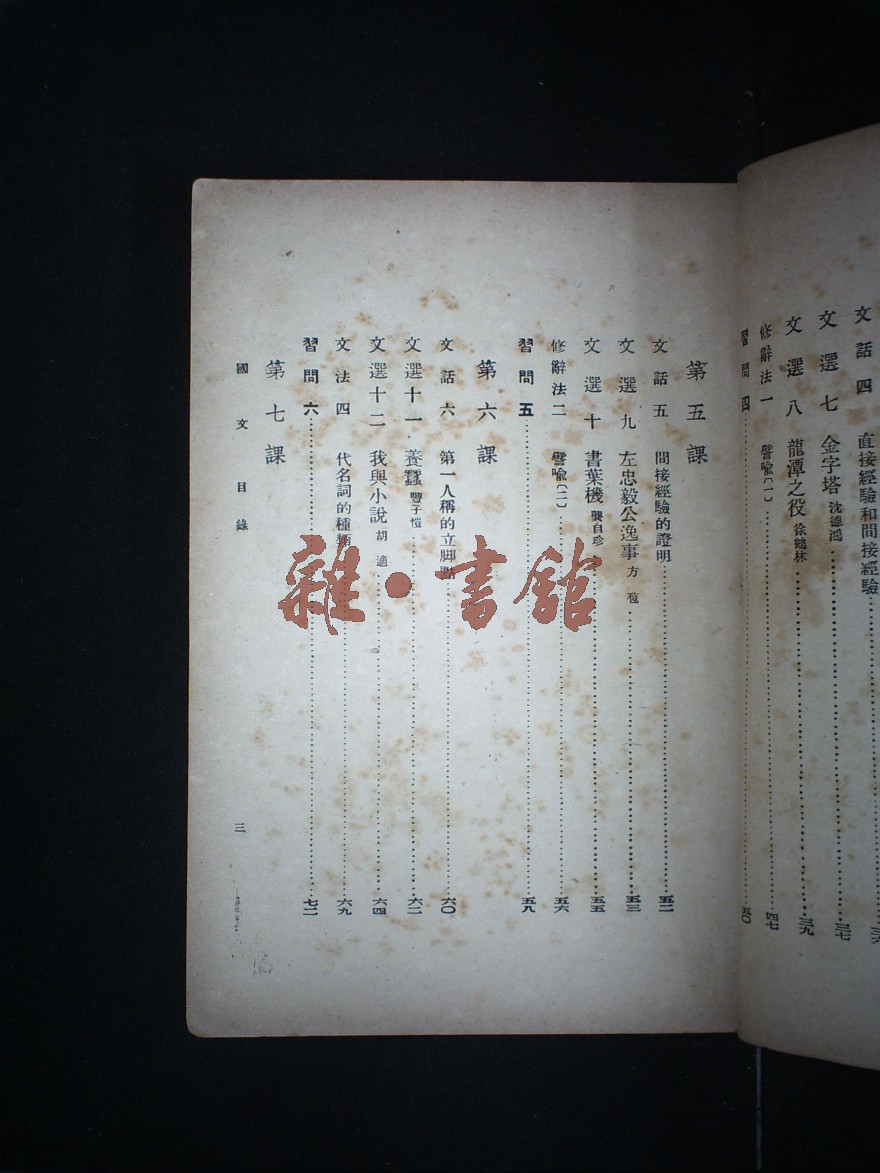 文話四　直接經驗和間接經驗……三六
文選七　金字塔　沈德鴻……三七
文選八　龍潭之役　徐鶴林……三九
修辭法一　譬喩〔一〕……四七
習問四……五〇
第五課
文話五　間接經驗的證明……五二
文選九　左忠毅公逸事　方苞……五三
文選十　書葉機　龔自珍……五五
修辭法二　譬喩〔二〕……五六
習問五……五九
第六課
文話六　第一人稱的立脚點……六〇
文選十一　養蠶　豐子愷……六二
文選十二　我與小說　胡適……六四
文法四　代名詞的種類……六九
習問六……七二
第七課
國文　目錄　三
雜·書館